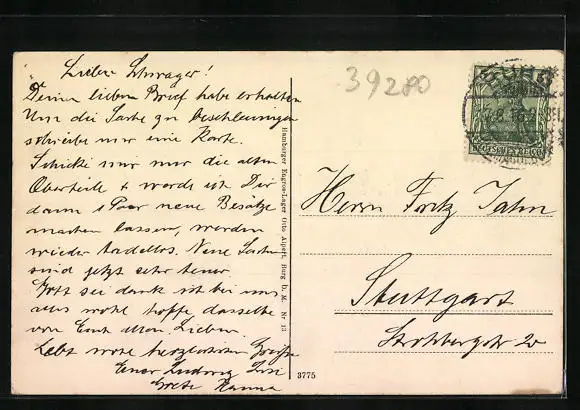 Lieber Schwager!
Deinen lieben Brief habe erhalten
Um die Sache zu beschleunigen
schreibe nur eine Karte.
Schicke mir nur die alten
Oberteile & werde ich Dir
dann 1 Paar neue Besätze
machen lassen, werden
wieder tadellos. Neue Sachen
sind jetzt sehr teuer.
Gott sei dank ist bei uns
alles wohl hoffe dasselbe
von Euch allen Lieben.
Lebt wohl herzlichsten Grüße
Euer Ludwig
Grete Hanna
Hamburger Engros-Lager Otto Alpert, Burg b. M. Nr 13
3775
39280
BURG
8.16
DEUTSCHES REICH
Herrn Fritz Jahn
Stuttgart